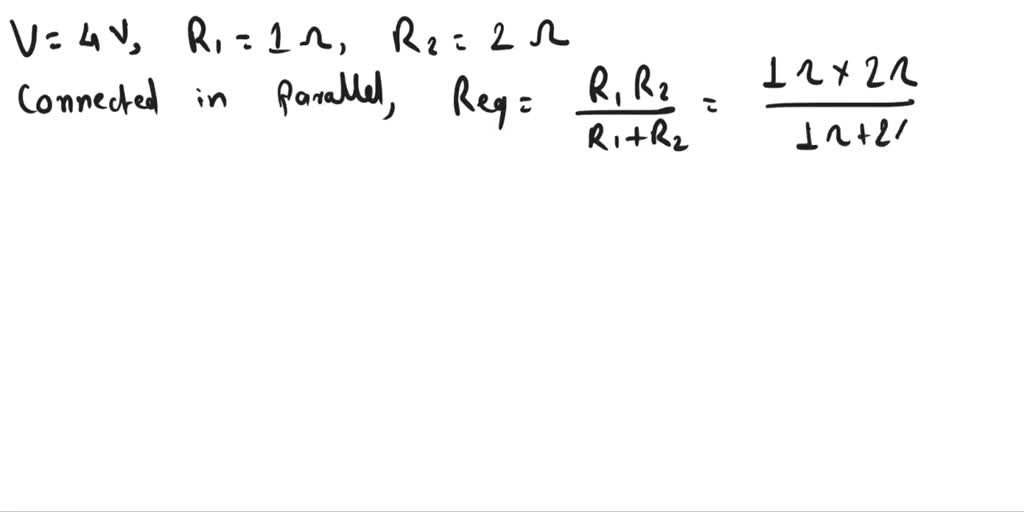 V = 4V, R₁ = 1 Ω, R₂ = 2 Ω
Connected in Parallel, Req = R₁ R₂ / R₁+R₂ = 1Ω × 2Ω / 1Ω+2